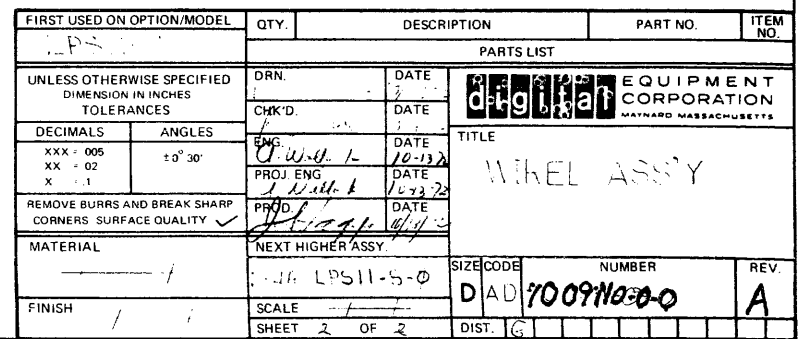 FIRST USED ON OPTION/MODEL
QTY.
DESCRIPTION
PART NO.
ITEM NO.
PARTS LIST
UNLESS OTHERWISE SPECIFIED
DIMENSION IN INCHES
TOLERANCES
DECIMALS
ANGLES
XXX = 005
XX = 02
X = .1
±0° 30'
REMOVE BURRS AND BREAK SHARP
CORNERS SURFACE QUALITY
MATERIAL
FINISH
DRN.
DATE
CHK'D.
DATE
ENG.
DATE
10-13-72
PROJ. ENG
DATE
10-13-72
PROD.
DATE
NEXT HIGHER ASSY.
LPS11-S-0
SCALE
SHEET 2 OF 2
digital
EQUIPMENT
CORPORATION
MAYNARD MASSACHUSETTS
TITLE
ASS'Y
SIZE
CODE
NUMBER
REV.
D
AD
A
DIST.
G